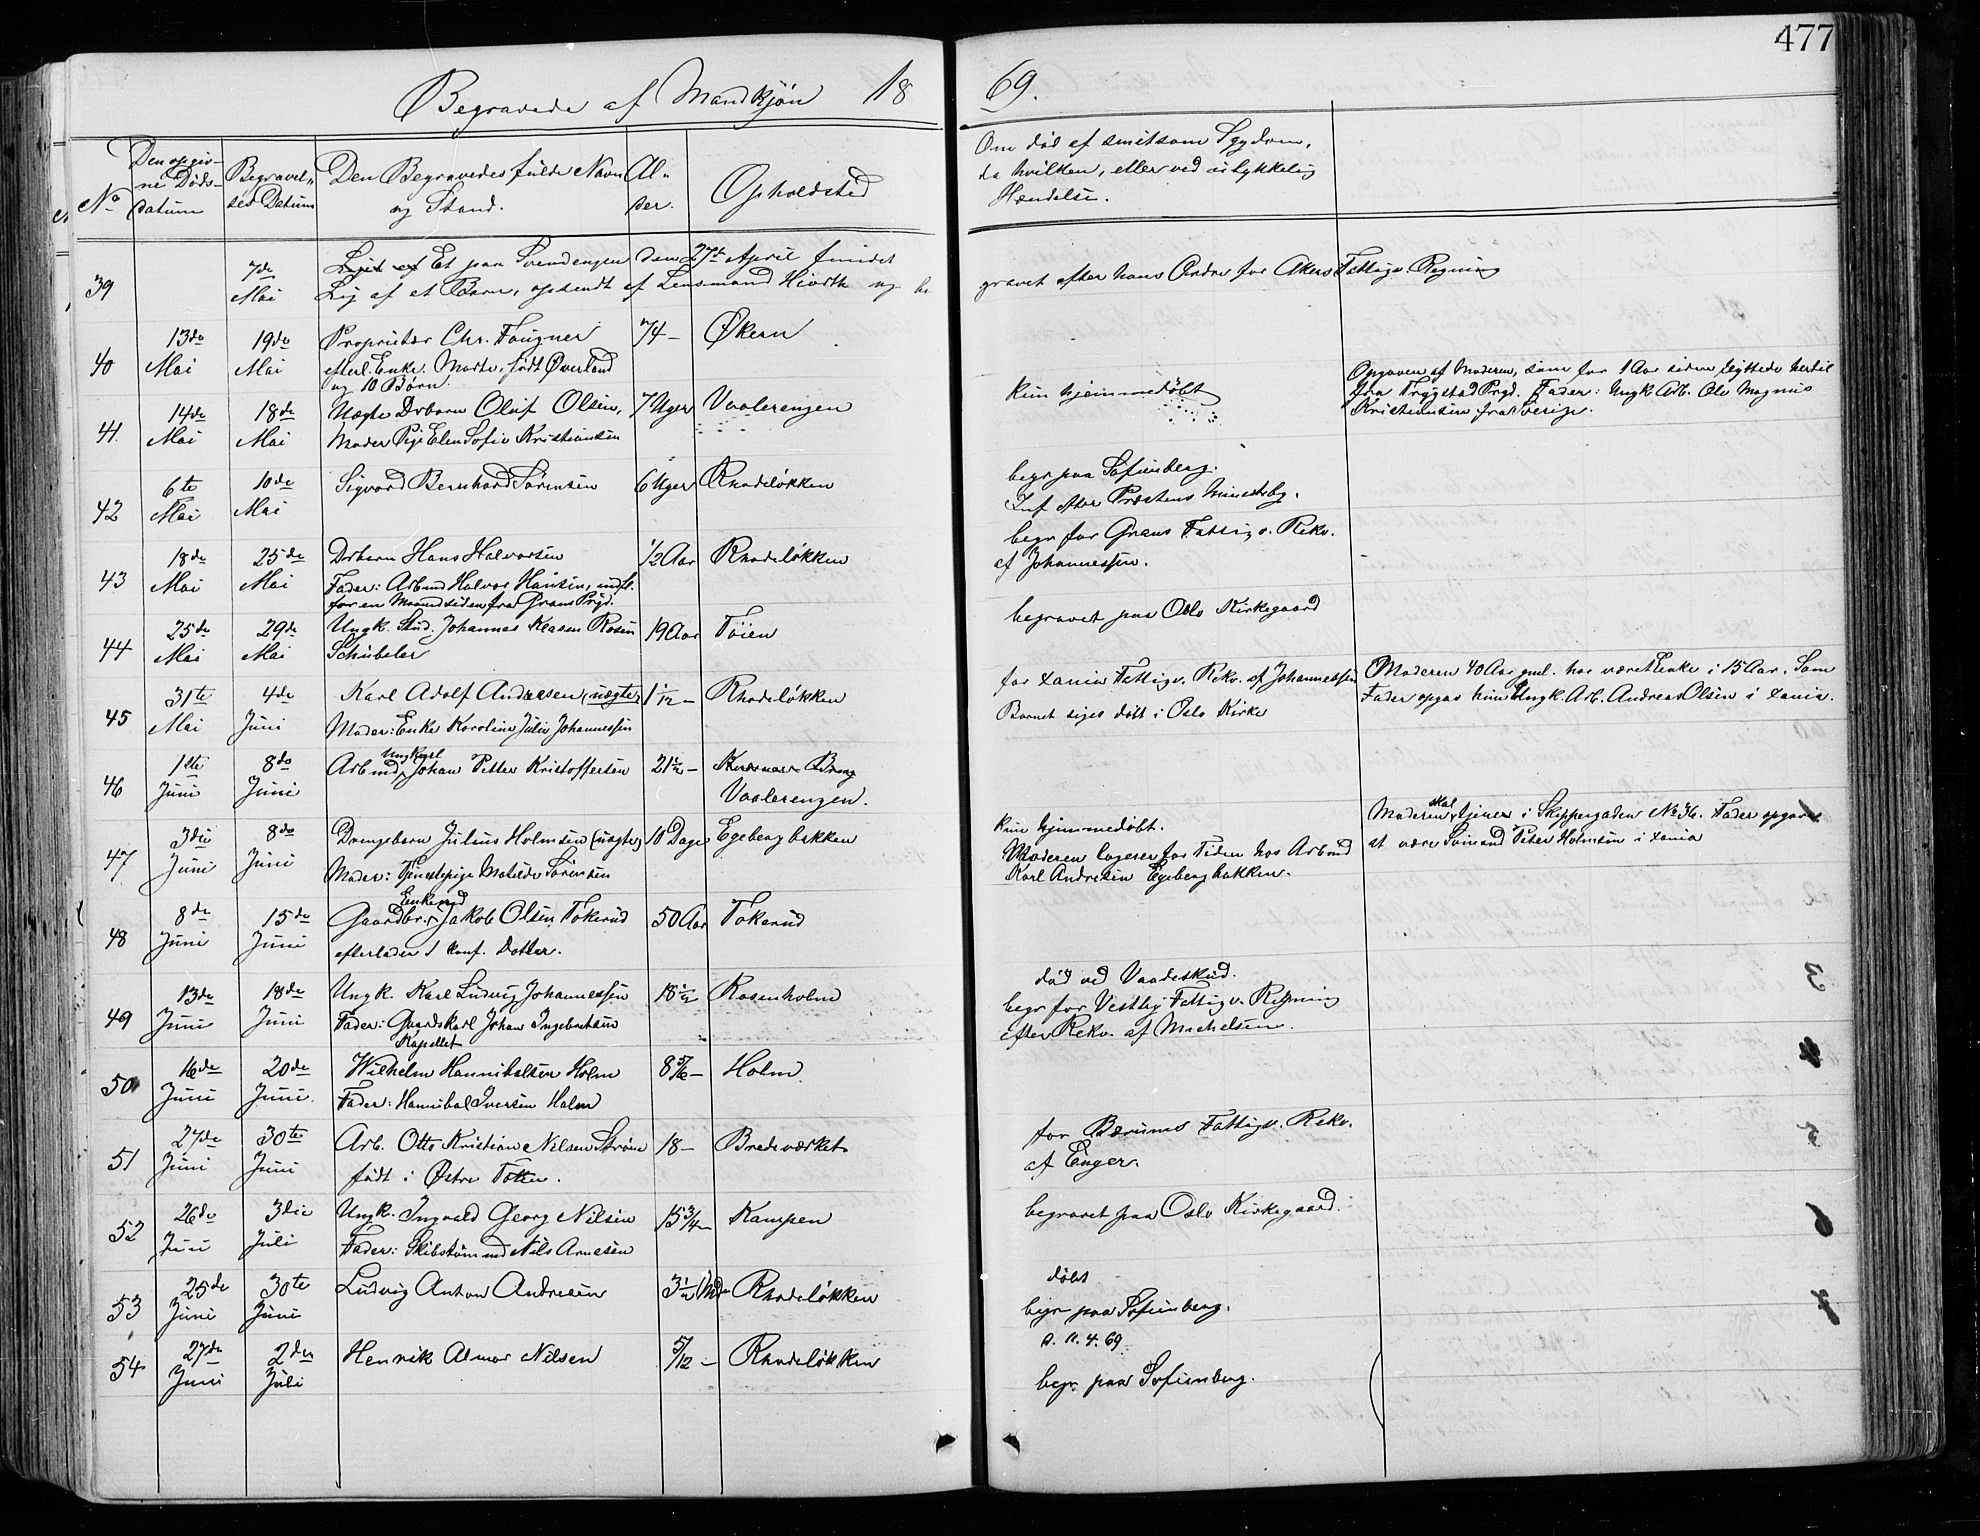 477
Begravede af Mandkjøn 1869.
No
Den opgiv-
ne Døds-
datum
Begravel-
ses Datum
Den Begravedes fulde Navn
og Stand.
Al-
der.
Opholdsted
Om død af smitsom Sygdom,
da hvilken, eller ved ulykkelig
Hændelse.
39
7de
Mai
Et paa Svendengen den 27de April fundet
Lig af et Barn, opsendt af Lensmand Hiorth og be
gravet efter hans Ordre for Akers Fattigv. Regning
40
13de
Mai
19de
Mai
Proprietær Chr. Fougner
efterl. Enke. Marte, født Øverland
og 10 Børn.
74 -
Økern
41
14de
Mai
18de
Mai
Uægte Drbarn Oluf Olsen,
Moder Pige Elen Sofie Kristiansen
7 Uger
Vaalerengen
kun hjemmedøbt
Opgaven af Moderen, som for 1 Aar siden flyttede hertil
fra Trygstad Prgd. Fader: Ungk Arb. Ole Magnus
Kristiansen fra Sverige.
42
6te
Mai
10de
Mai
Sigvard Bernhard Sørensen
6 Uger
Rhodeløkken
begr paa Sofienberg.
Inf efter Præstens
43
18de
Mai
25de
Mai
Drbarn Hans Halvorsen
Fader: Arbmd Halvor Hansen, indfl.
for en Maaned siden fra Grans Prgd.
1/2 Aar
Rhodeløkken
begr for Grans Fattigv. Rekv.
af Johannessen.
44
25de
Mai
29de
Mai
Ungk. Stud. Johannes Klasen Rosen
Schübeler
19 Aar
Tøien
begravet paa Oslo Kirkegaard
45
31te
Mai
4de
Juni
Karl Adolf Andresen (uægte)
Moder: Enke Karoline Julie Johannessen
1 1/12 -
Rhodeløkken
for Xania Fattigv. Rekv. af Johannessen
Barnet siges døbt i Oslo Kirke
Moderen 40 Aar gml. har været Enke i 15 Aar. Som
Fader opgav hun Ungk. Arb. Andreas Olsen i Xania.
46
1ste
Juni
8de
Juni
Ungkarl
Arbmd Johan Petter Kristoffersen
21 1/2 -
Vaalerengen.
47
3die
Juni
8de
Juni
Drengebarn Julius Holmsen (uægte)
Moder: Tjenestepige Matilde Sørensen
10 Dage
Egeberg bakken
kun hjemmedøbt.
Moderen logerer for Tiden hos Arbmd
Karl Andresen Egebergbakken.
skal
Moderen tjener i Skippergaden No 36. Fader opgaves
at være Sømand Peter Holmsen i Xania
48
8de
Juni
15de
Juni
Enkemd
Gaardbr. Jakob Olsen Tokerud
efterlader 1 konf. Datter.
50 Aar
Tokerud
49
13de
Juni
18de
Juni
Ungk. Karl Ludvig Johannessen
Fader: Gaardskarl Johan Ingebretsen
Kapellet
18 1/2 -
Rosenholm
død ved Vaadeskud.
begr for Vestby Fattigv. Regning
efter Rekv. af Michelsen.
50
16de
Juni
20de
Juni
Wilhelm Hannibalsen Holm
Fader: Hannibal Iversen Holm
8 5/6 -
Holm
51
27de
Juni
30te
Juni
Arb. Otto Kristian Nilsen Strøm
født i Østre Toten.
18 -
Bredeværket
for Bærums Fattigv. Rekv.
af Enger.
52
26de
Juni
3die
Juli
Ungk. Ingvald Georg Nilsen
Fader: Skibstømmd Nils Arnesen
15 3/4 -
Kampen
begravet paa Oslo Kirkegaard.
53
25de
Juni
30te
Juni
Ludvig Anton Andresen
3 1/2 Md
Rhodeløkken
døbt
begr paa Sofienberg.
54
27de
Juni
2den
Juli
Henrik Almar Nilsen
5/12 -
Rhodeløkken
D. 11. 4. 69.
begr. paa Sofienberg.